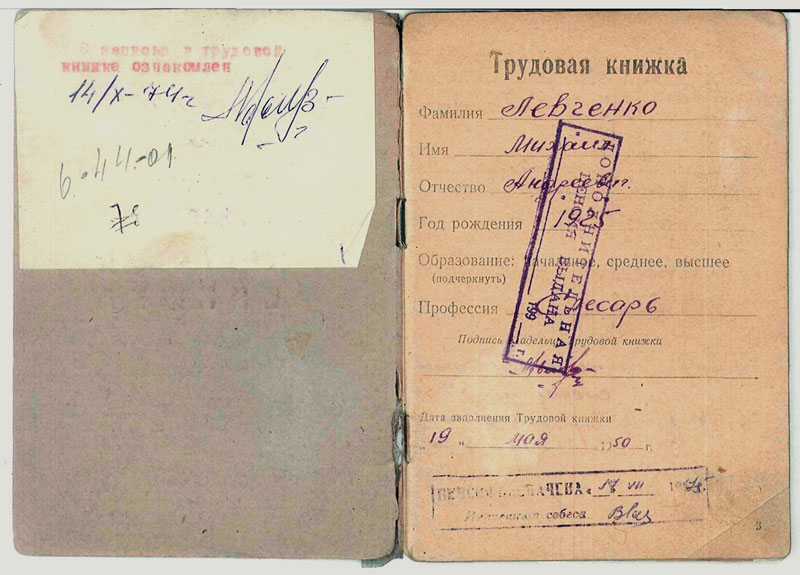 С записью в трудовой
книжке ознакомлен
14/X-74г
6.-44.-01
Трудовая книжка
Фамилия Левченко
Имя Михаил
Отчество
Год рождения 1925
Образование: начальное, среднее, высшее
(подчеркнуть)
Профессия Слесарь
Подпись владельца Трудовой книжки
Дата заполнения Трудовой книжки
"19" мая 1950 г.
ПЕНСИЯ НАЗНАЧЕНА 17 VII
собеса
ДОПОЛНИТЕЛЬНАЯ
ПЕНСИЯ ВЫДАНА
199 г.
3